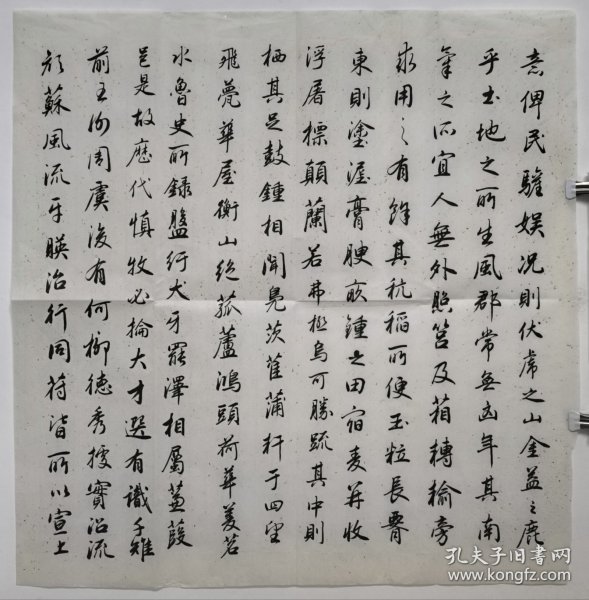 意俾民驩娛況則伏席之山金益之鹿
乎土地之所生風郡常無凶年其南
年之所宜人無外照筥及葙轉輸旁
求用之有餘其秔稻所便玉粒長霄
東則塗渥膏腴畝鍾之田宿麦再收
浮屠標顛蘭若弗極烏可勝疏其中則
栖其足鼓鍾相聞鳧茨萑蒲杆于四望
飛甍華屋衡山絕菰蘆鴻頭荷華菱茗
水魯史所錄盤紆犬牙罷澤相屬葍葭
邑是故歷代慎牧必掄大才選有識手雉
前王洵周虞後有何柳德秀據實沿流
顔蘇風流牙暎治行同苻皆所以宣上
孔夫子旧書网
www.kongfz.com